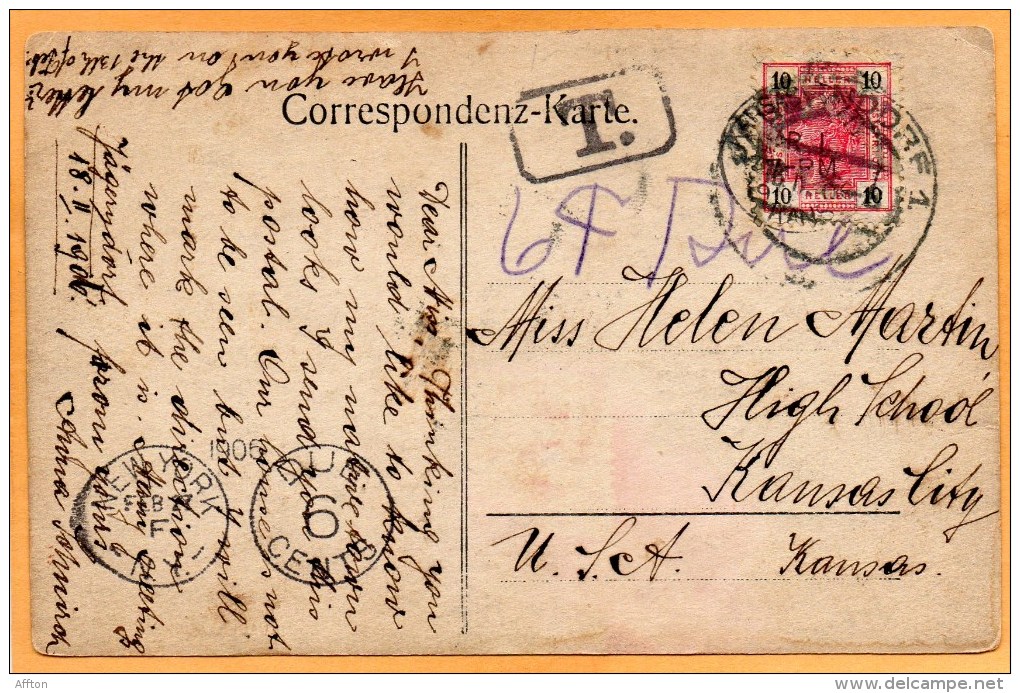 Correspondenz-Karte.
T.
10 HELLER 10
10 HELLER 10
JÄGERNDORF 1
6¢ Due
Miss Helen Martin
High School
Kansas City
U. S. A. Kansas.
Dear Miss, Thinking you
would like to know
how my native town
looks I send you this
postal. Our home is not
to be seen but I will
mark the direction
where it is. Many greeting
from yours
Anna Schmirch
Jägerndorf
18. II. 1906.
Have you got my letter?
I wrote you on the 13th of Feb.
NEW YORK
1906
DUE
6
CENTS
Affton
delcampe.net